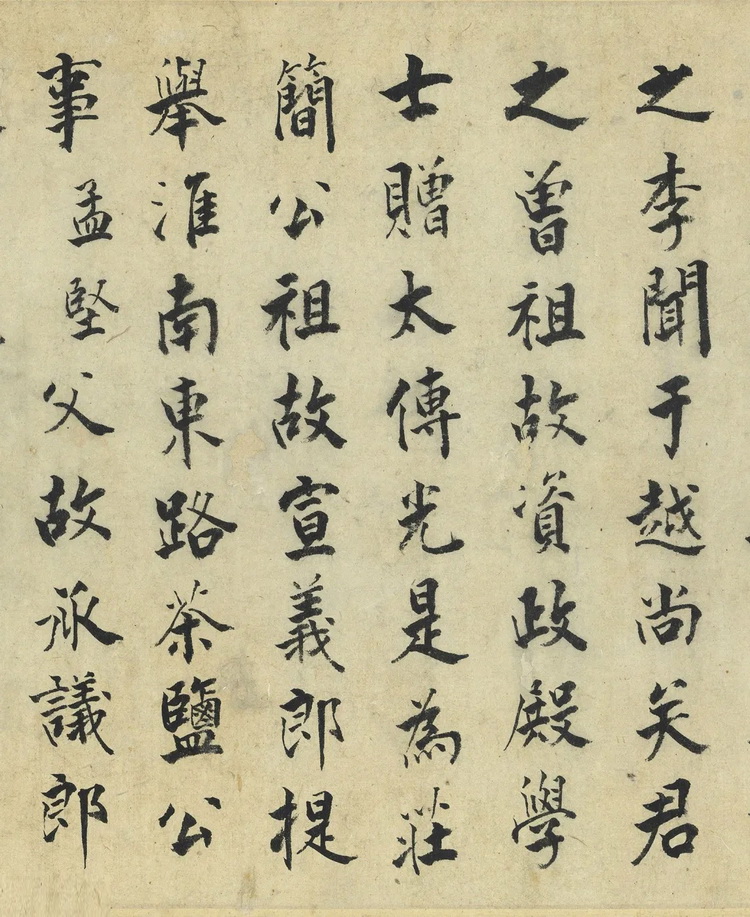 之李聞于越尚矣君
之曾祖故資政殿學
士贈太傅光是為莊
簡公祖故宣義郎提
舉淮南東路茶鹽公
事孟堅父故承議郎